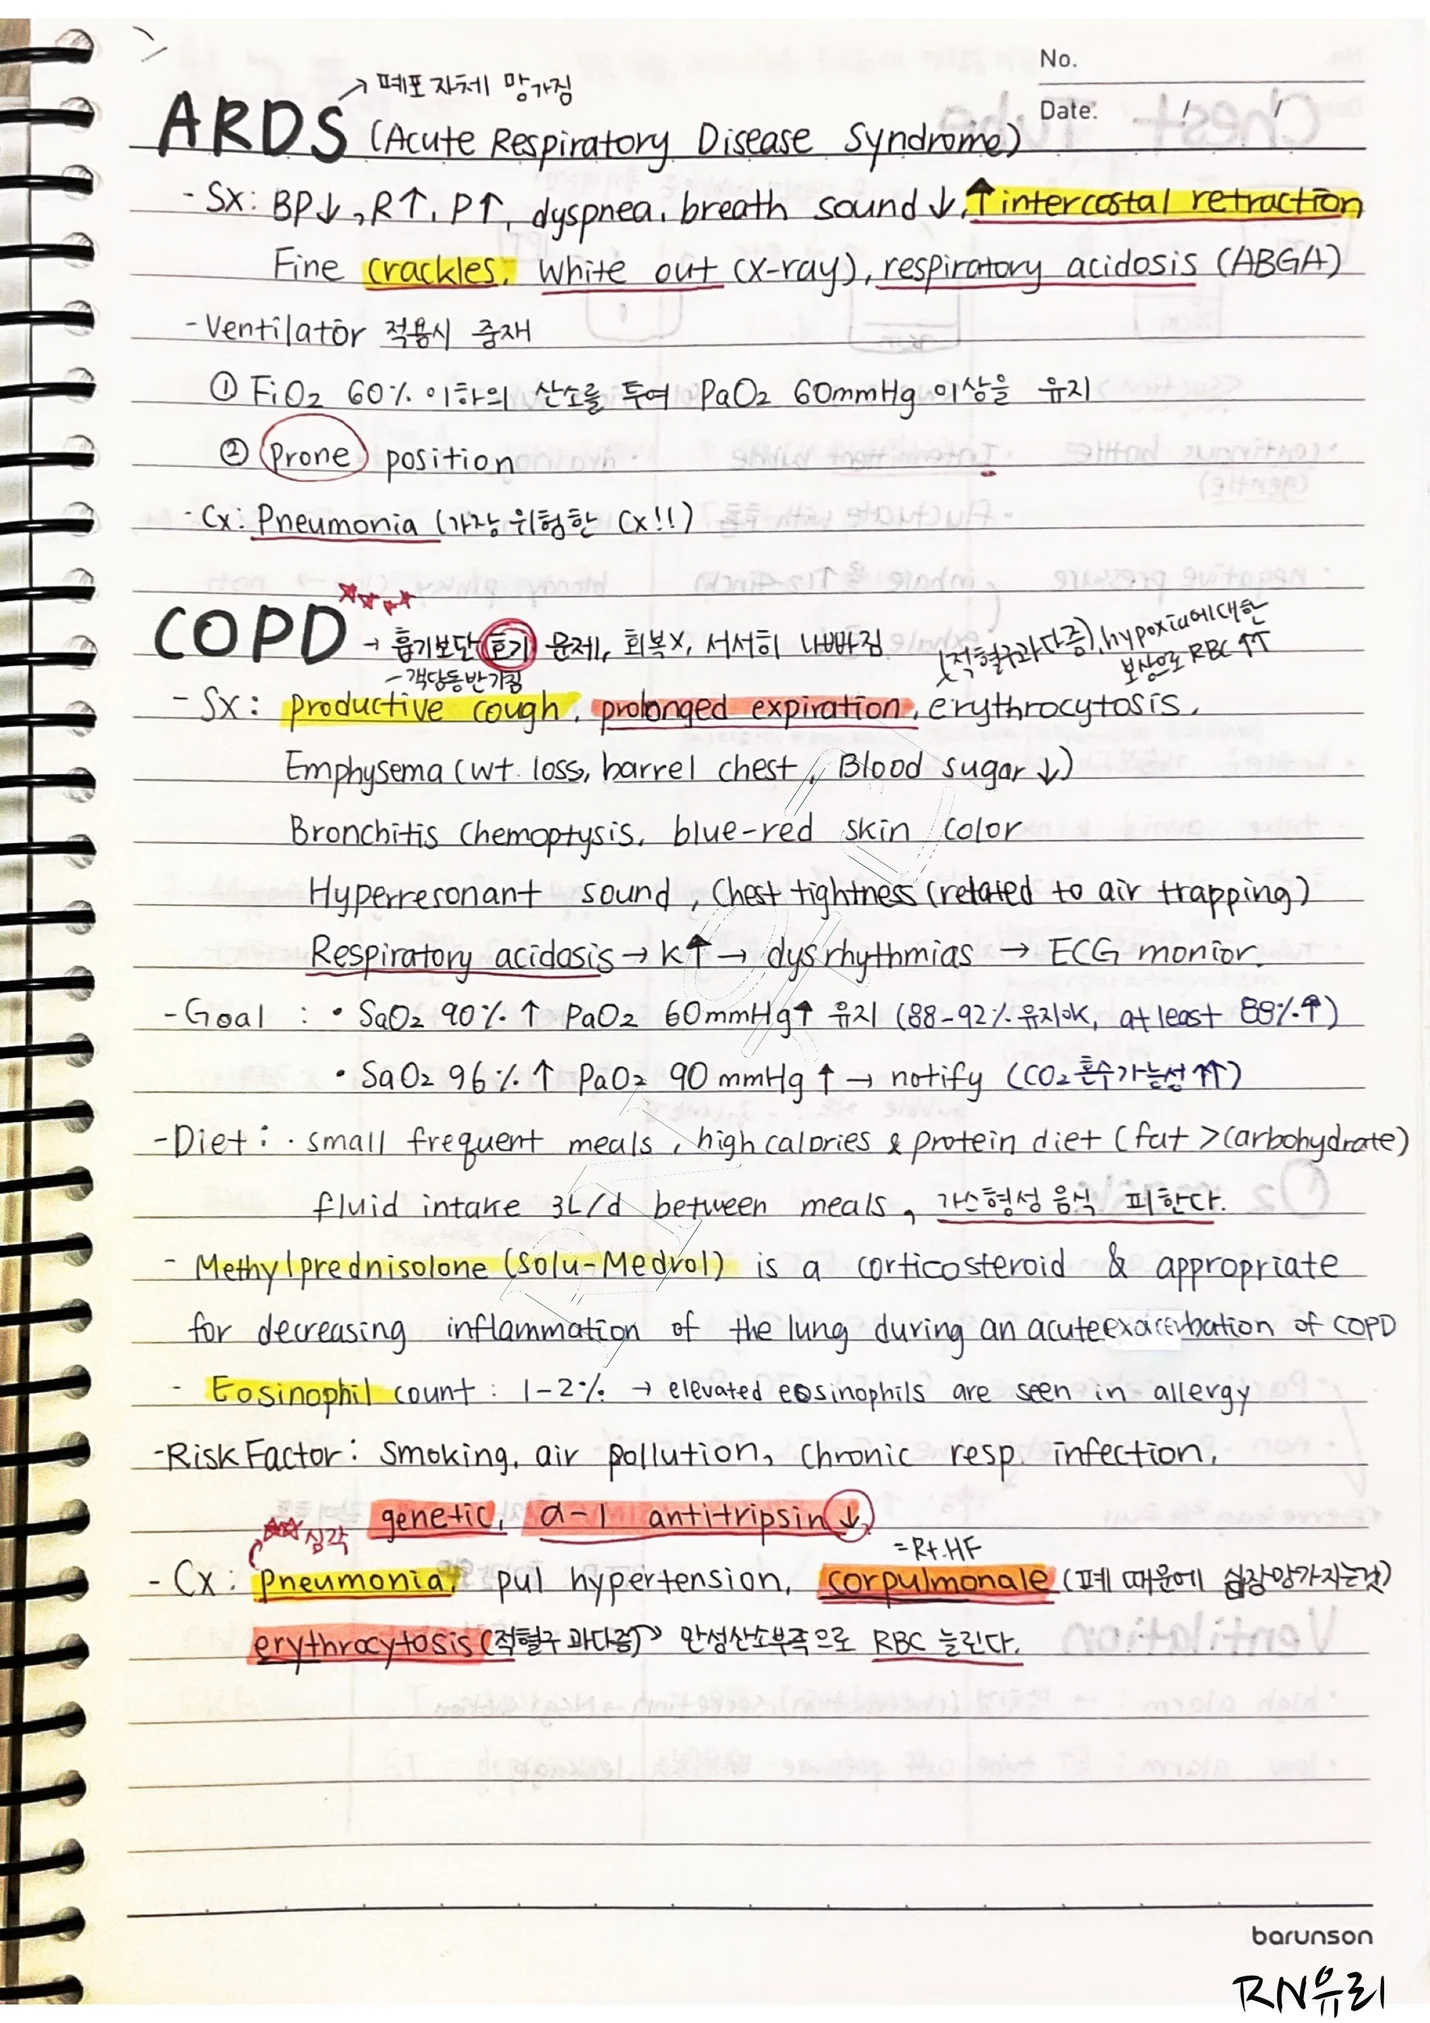 No.
→ 폐포 자체 망가짐
Date: / /
ARDS (Acute Respiratory Disease Syndrome)
- Sx: BP↓, R↑, P↑, dyspnea, breath sound ↓, ↑intercostal retraction
Fine crackles, white out (x-ray), respiratory acidosis (ABGA)
- Ventilator 적용시 중재
① FiO2 60% 이하의 산소를 투여 PaO2 60mmHg 이상을 유지
② Prone position
- Cx: Pneumonia (가장 위험한 Cx!!)
COPD → 흡기보단 호기 문제, 회복x, 서서히 나빠짐
(적혈구과다증), hypoxia에 대한
보상으로 RBC ↑↑
- 객담동반기침
- Sx: productive cough, prolonged expiration, erythrocytosis,
Emphysema (wt. loss, barrel chest, Blood sugar ↓)
Bronchitis Chemoptysis, blue-red skin color
Hyperresonant sound, Chest tightness (related to air trapping)
Respiratory acidosis → K↑ → dysrhythmias → ECG monior.
- Goal : • SaO2 90%↑ PaO2 60mmHg↑ 유지 (88-92% 유지ok, at least 88%↑)
• SaO2 96%↑ PaO2 90 mmHg ↑ → notify (CO2 혼수가능성 ↑↑)
- Diet : · small frequent meals, high calories & protein diet (fat > carbohydrate)
fluid intake 3L/d between meals, 가스형성 음식 피한다.
- Methylprednisolone (Solu-Medrol) is a corticosteroid & appropriate
for decreasing inflammation of the lung during an acute exacerbation of COPD
- Eosinophil count : 1-2% → elevated eosinophils are seen in allergy
- Risk Factor : smoking, air pollution, chronic resp. infection,
genetic, α-1 antitripsin ↓
심각
=Rt. HF
- Cx: pneumonia, pul hypertension, corpulmonale (폐 때문에 심장망가지는것)
erythrocytosis (적혈구 과다증) → 만성산소부족으로 RBC 늘린다.
barunson
RN유리